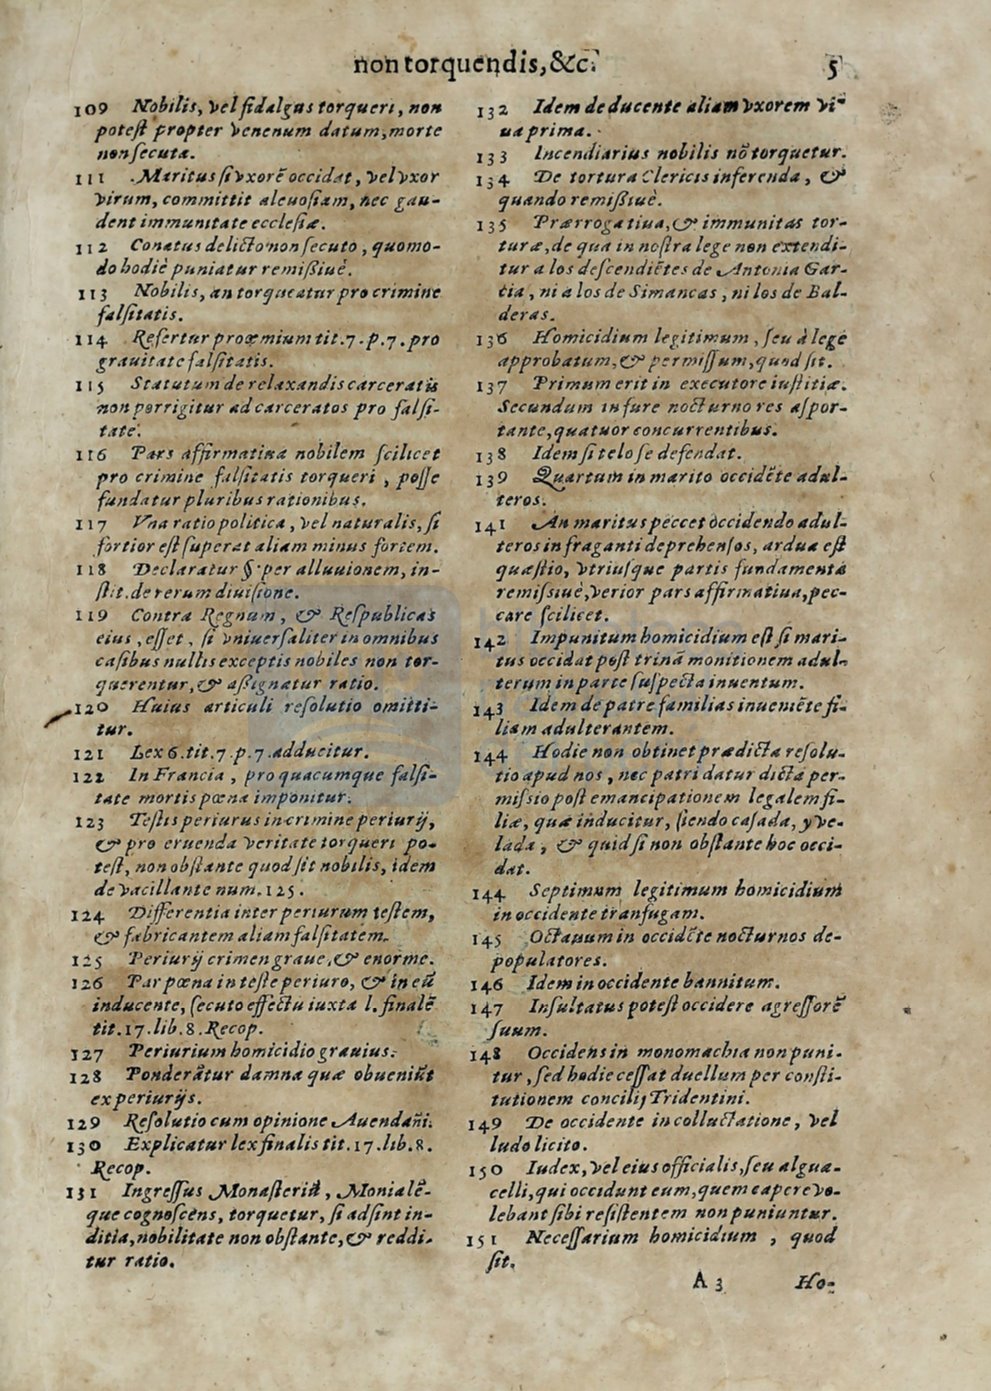 non torquendis, &c. 5
109 Nobilis, vel fidalgus torqueri, non
potest propter venenum datum, morte
non secuta.
111 Maritus si vxorē occidat, vel vxor
virum, committit aleuosiam, nec gau-
dent immunitate ecclesiæ.
112 Conatus delicto non secuto, quomo-
do hodiè puniatur remissiuè.
113 Nobilis, an torqueatur pro crimine
falsitatis.
114 Refertur proœmium tit.7.p.7.pro
grauitate falsitatis.
115 Statutum de relaxandis carceratis
non porrigitur ad carceratos pro falsi-
tate.
116 Pars affirmatiua nobilem scilicet
pro crimine falsitatis torqueri, posse
fundatur pluribus rationibus.
117 Vna ratio politica, vel naturalis, si
fortior est superat aliam minus fortem.
118 Declaratur §. per alluuionem, in-
stit. de rerum diuisione.
119 Contra Regnum, & Respublicas
eius, esset, si vniuersaliter in omnibus
casibus nullis exceptis nobiles non tor-
querentur, & assignatur ratio.
120 Huius articuli resolutio omitti-
tur.
121 Lex 6.tit.7.p.7.adducitur.
122 In Francia, pro quacumque falsi-
tate mortis pœna imponitur.
123 Testis periurus in crimine periurij,
& pro eruenda veritate torqueri po-
test, non obstante quod sit nobilis, idem
de vacillante num.125.
124 Differentia inter periurum testem,
& fabricantem aliam falsitatem.
125 Periurij crimen graue, & enorme.
126 Par pœna in teste periuro, & in eū
inducente, secuto effectu iuxta l. finalē
tit.17.lib.8.Recop.
127 Periurium homicidio grauius.
128 Ponderātur damna quæ obueniūt
ex periurijs.
129 Resolutio cum opinione Auendañi.
130 Explicatur lex finalis tit.17.lib.8.
Recop.
131 Ingressus Monasteriū, Monialē-
que cognoscens, torquetur, si adsint in-
ditia, nobilitate non obstante, & reddi-
tur ratio.
132 Idem de ducente aliam vxorem vi-
ua prima.
133 Incendiarius nobilis nō torquetur.
134 De tortura Clericis inferenda, &
quando remissiuè.
135 Prærrogatiua, & immunitas tor-
turæ, de qua in nostra lege non extendi-
tur a los descendiētes de Antonia Gar-
cia, ni a los de Simancas, ni los de Bal-
deras.
136 Homicidium legitimum, seu à lege
approbatum, & permissum, quod sit.
137 Primum erit in executore iustitiæ.
Secundum in fure nocturno res aspor-
tante, quatuor concurrentibus.
138 Idem si telo se defendat.
139 Quartum in marito occidēte adul-
teros.
141 An maritus peccet occidendo adul-
teros in fraganti deprehensos, ardua est
quæstio, vtriusque partis fundamenta
remissiuè, verior pars affirmatiua, pec-
care scilicet.
142 Impunitum homicidium est si mari-
tus occidat post trinā monitionem adul-
terum in parte suspecta inuentum.
143 Idem de patre familias inueniēte fi-
liam adulterantem.
144 Hodie non obtinet prædicta resolu-
tio apud nos, nec patri datur dicta per-
missio post emancipationem legalem fi-
liæ, quæ inducitur, siendo casada, y ve-
lada, & quid si non obstante hoc occi-
dat.
144 Septimum legitimum homicidium
in occidente transfugam.
145 Octauum in occidēte nocturnos de-
populatores.
146 Idem in occidente bannitum.
147 Insultatus potest occidere agressorē
suum.
148 Occidens in monomachia non puni-
tur, sed hodie cessat duellum per consti-
tutionem concilij Tridentini.
149 De occidente in colluctatione, vel
ludo licito.
150 Iudex, vel eius officialis, seu algua-
celli, qui occidunt eum, quem capere vo-
lebant sibi resistentem non puniuntur.
151 Necessarium homicidium, quod
sit.
A 3 Ho-